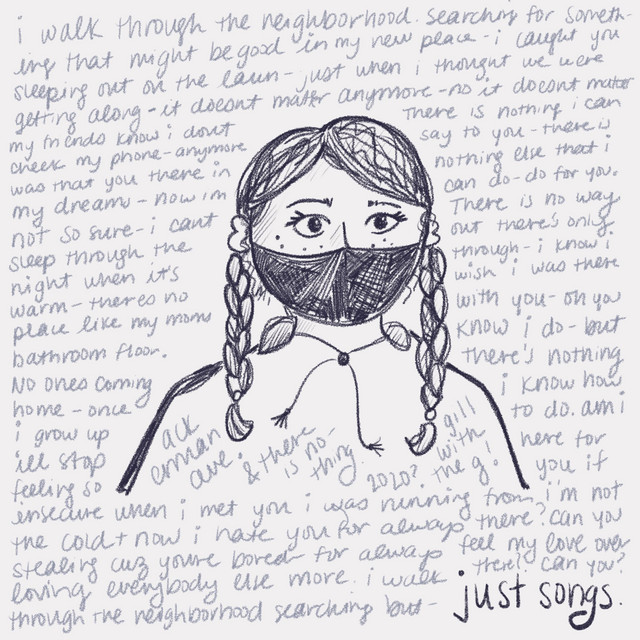 i walk through the neighborhood. searching for someth-
ing that might be good in my new place - i caught you
sleeping out on the lawn - just when i thought we were
getting along - it doesnt matter anymore - no it doesnt matter
my friends know i dont
check my phone - anymore
was that you there in
my dreams - now im
not so sure - i cant
sleep through the
night when it's
warm - theres no
place like my moms
bathroom floor.
No ones coming
home - once
i grow up
ill stop
feeling so
insecure when i met you i was running from
the cold + now i hate you for always
stealing cuz youre bored for always
loving everybody else more. i walk
through the neighborhood searching but -
There is nothing i can
say to you - there is
nothing else that i
can do - do for you.
There is no way
out there's only.
through - i know i
wish i was there
with you - oh you
know i do - but
there's nothing
i know how
to do. am i
here for
you if
i'm not
there? can you
feel my love over
there? can you?
ack
erman
ave.
& there
is no-
thing.
2020?
gill
with
the g!
just songs.